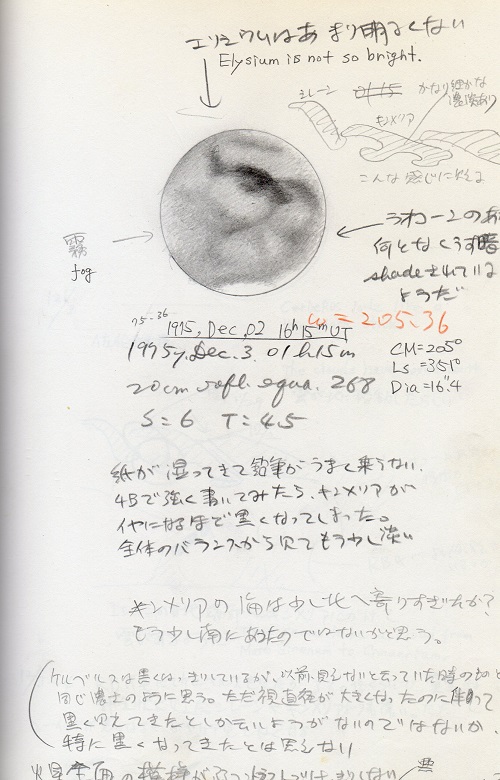 エリシウムはあまり明るくない
Elysium is not so bright.
シレーン
かなり細かな
濃淡あり
キンメリア
こんな感じに見える
霧
fog
何となくうす暗
shadeされている
ようだ
75-36
1975, Dec. 02 16h 15m UT
ω = 205.36
1975y. Dec. 3. 01h 15m
20cm refl. equa. 268
S=6 T=4.5
CM=205°
Ls =351°
Dia=16".4
紙が湿ってきて鉛筆がうまく乗らない.
4Bで強く書いてみたら、キンメリアが
イヤになるほど黒くなってしまった。
全体のバランスから見てもう少し淡い
キンメリアの海は少し北へ寄りすぎたか?
もう少し南にあったのではないかと思う。
ケルベルスは黒くはっきりしているが、以前見えないと云っていた時の
同じ濃さのように思う。ただ視直径が大きくなったのに伴って
黒く見えてきたとしか云いようがないのではないか.
特に黒くなってきたとは思えない